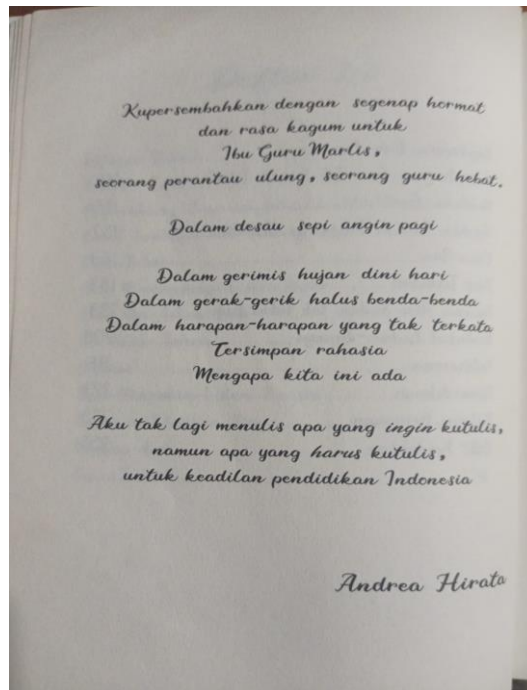 Kupersembahkan dengan segenap hormat
dan rasa kagum untuk
Ibu Guru Marlis,
seorang perantau ulung, seorang guru hebat.
Dalam desau sepi angin pagi
Dalam gerimis hujan dini hari
Dalam gerak-gerik halus benda-benda
Dalam harapan-harapan yang tak terkata
Tersimpan rahasia
Mengapa kita ini ada
Aku tak lagi menulis apa yang ingin kutulis,
namun apa yang harus kutulis,
untuk keadilan pendidikan Indonesia
Andrea Hirata